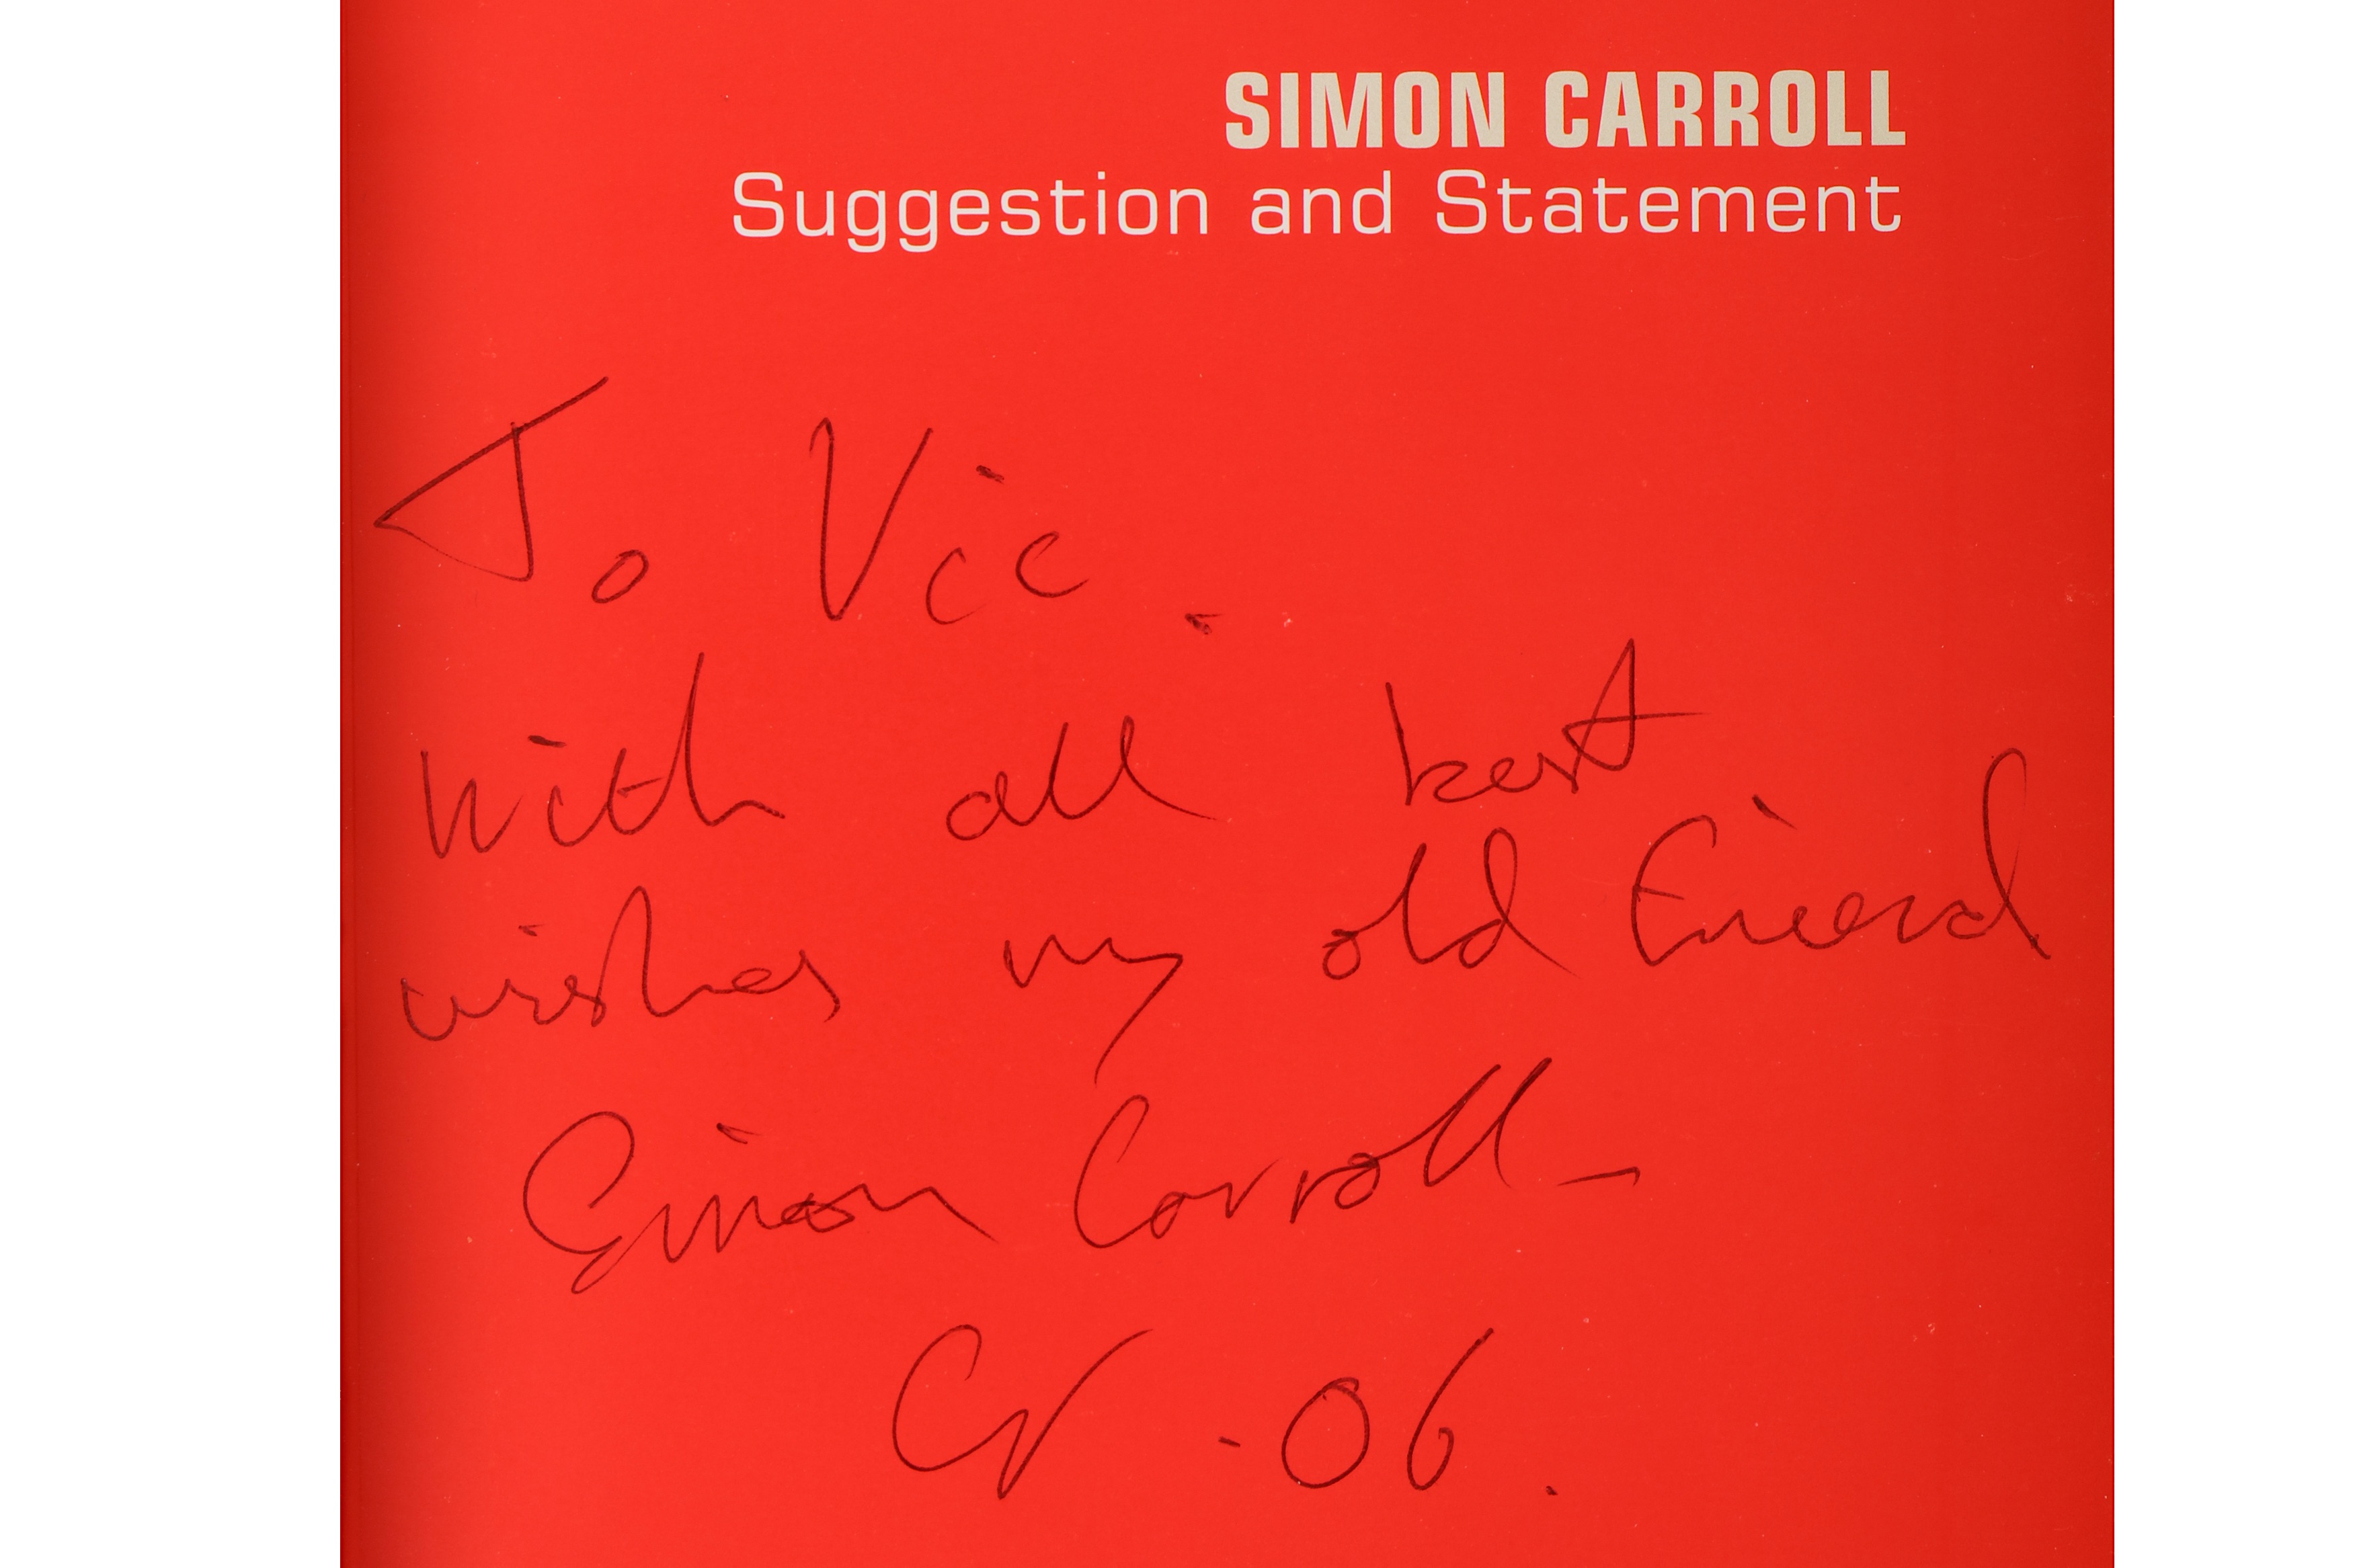 SIMON CARROLL
Suggestion and Statement
To Vic.
With all best
wishes my old Friend
Simon Carroll
-06.